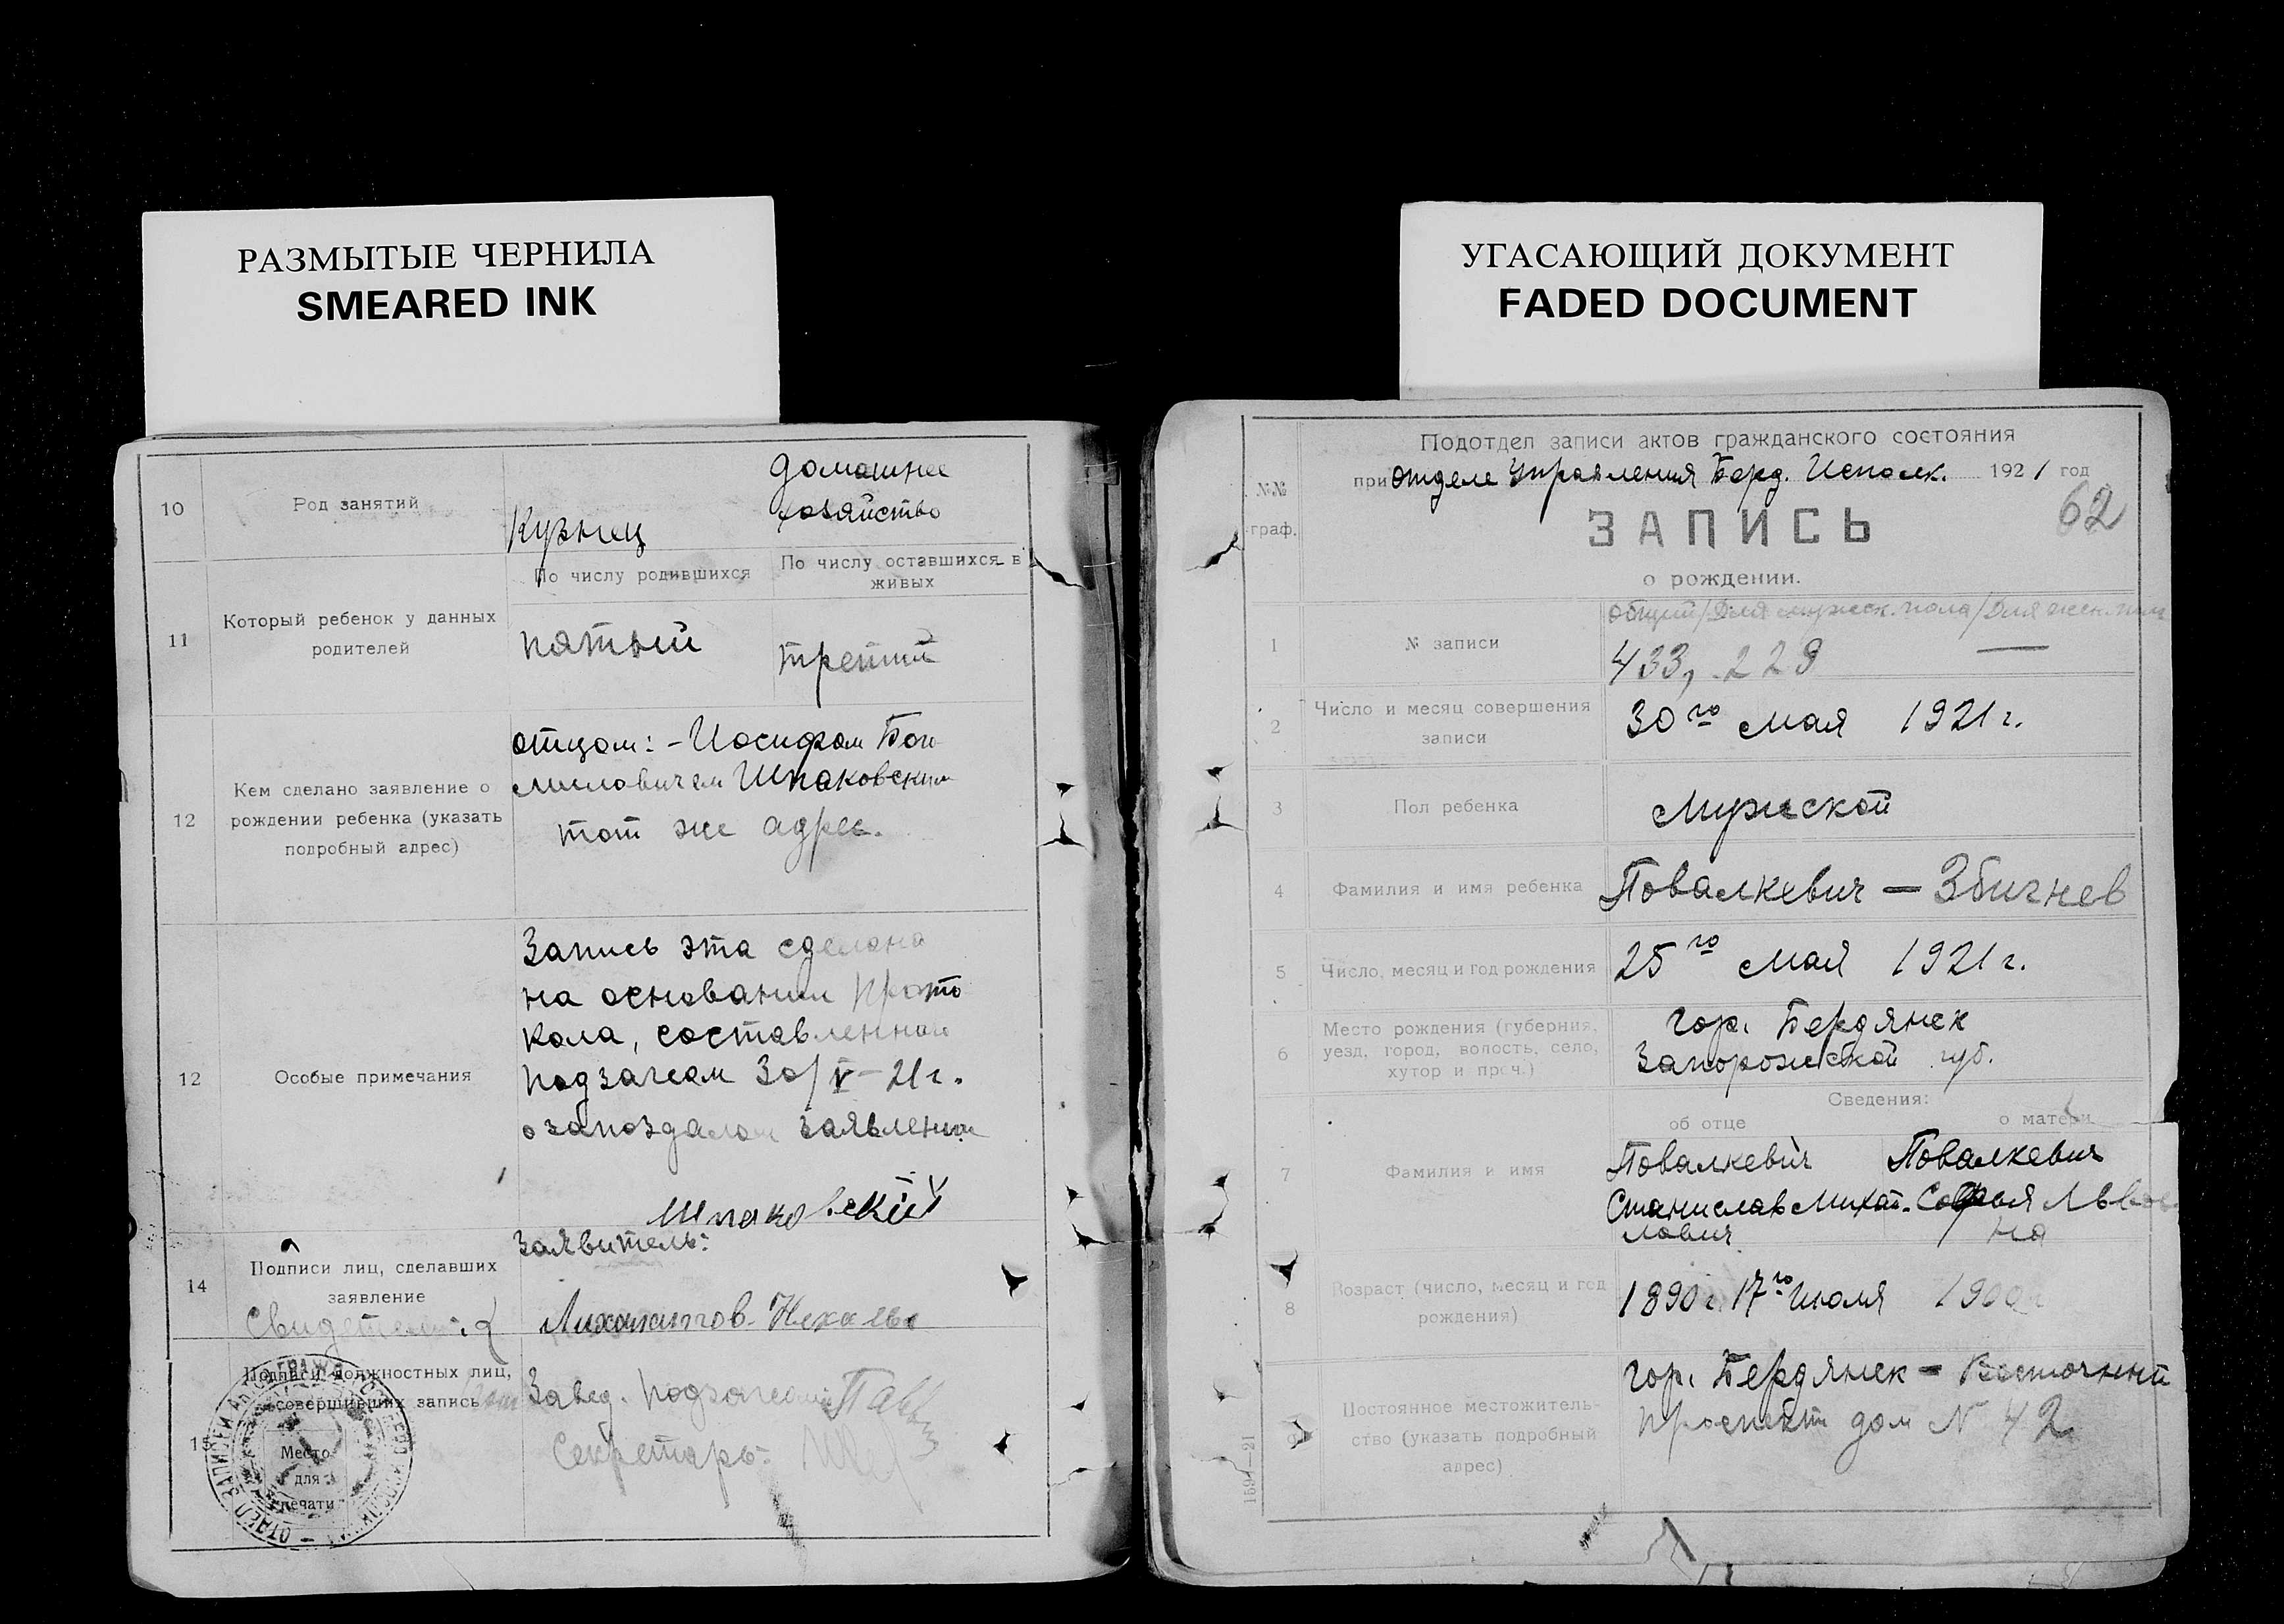 РАЗМЫТЫЕ ЧЕРНИЛА
SMEARED INK
10
Род занятий
Кузнец
домашнее
хозяйство
11
Который ребенок у данных
родителей
По числу родившихся
По числу оставшихся в
живых
пятый
третий
12
Кем сделано заявление о
рождении ребенка (указать
подробный адрес)
отцом: - Иосифом Бог
миловичем Шпаковским
тот же адрес.
12
Особые примечания
Запись эта сделана
на основании прото
кола, составленной
подзагсом 30/V-21г.
о запоздалом заявлении
Шпаковский
14
Подписи лиц, сделавших
заявление
Заявитель:
Свидетели:
15
Подписи должностных лиц,
совершивших запись
Завед. подзагсом
Секретарь:
Место
для
печати
УГАСАЮЩИЙ ДОКУМЕНТ
FADED DOCUMENT
№№
граф.
Подотдел записи актов гражданского состояния
при отделе Управления Берд. Исполк. 1921 год
62
ЗАПИСЬ
о рождении.
1
№ записи
общий/для мужск. пола/для жен. пола
433, 229 —
2
Число и месяц совершения
записи
30го мая 1921 г.
3
Пол ребенка
мужской
4
Фамилия и имя ребенка
Повалкевич — Збигнев
5
Число, месяц и год рождения
25го мая 1921 г.
6
Место рождения (губерния,
уезд, город, волость, село,
хутор и проч.)
гор. Бердянск
Запорожской губ.
Сведения:
об отце
о матери
7
Фамилия и имя
Повалкевич
Станислав Михай-
лович
Повалкевич
Софья Львов
на
8
Возраст (число, месяц и год
рождения)
1890 г. 17го Июля
1900 г
9
Постоянное местожитель-
ство (указать подробный
адрес)
гор. Бердянск - Восточный
проспект дом № 42
1594—21